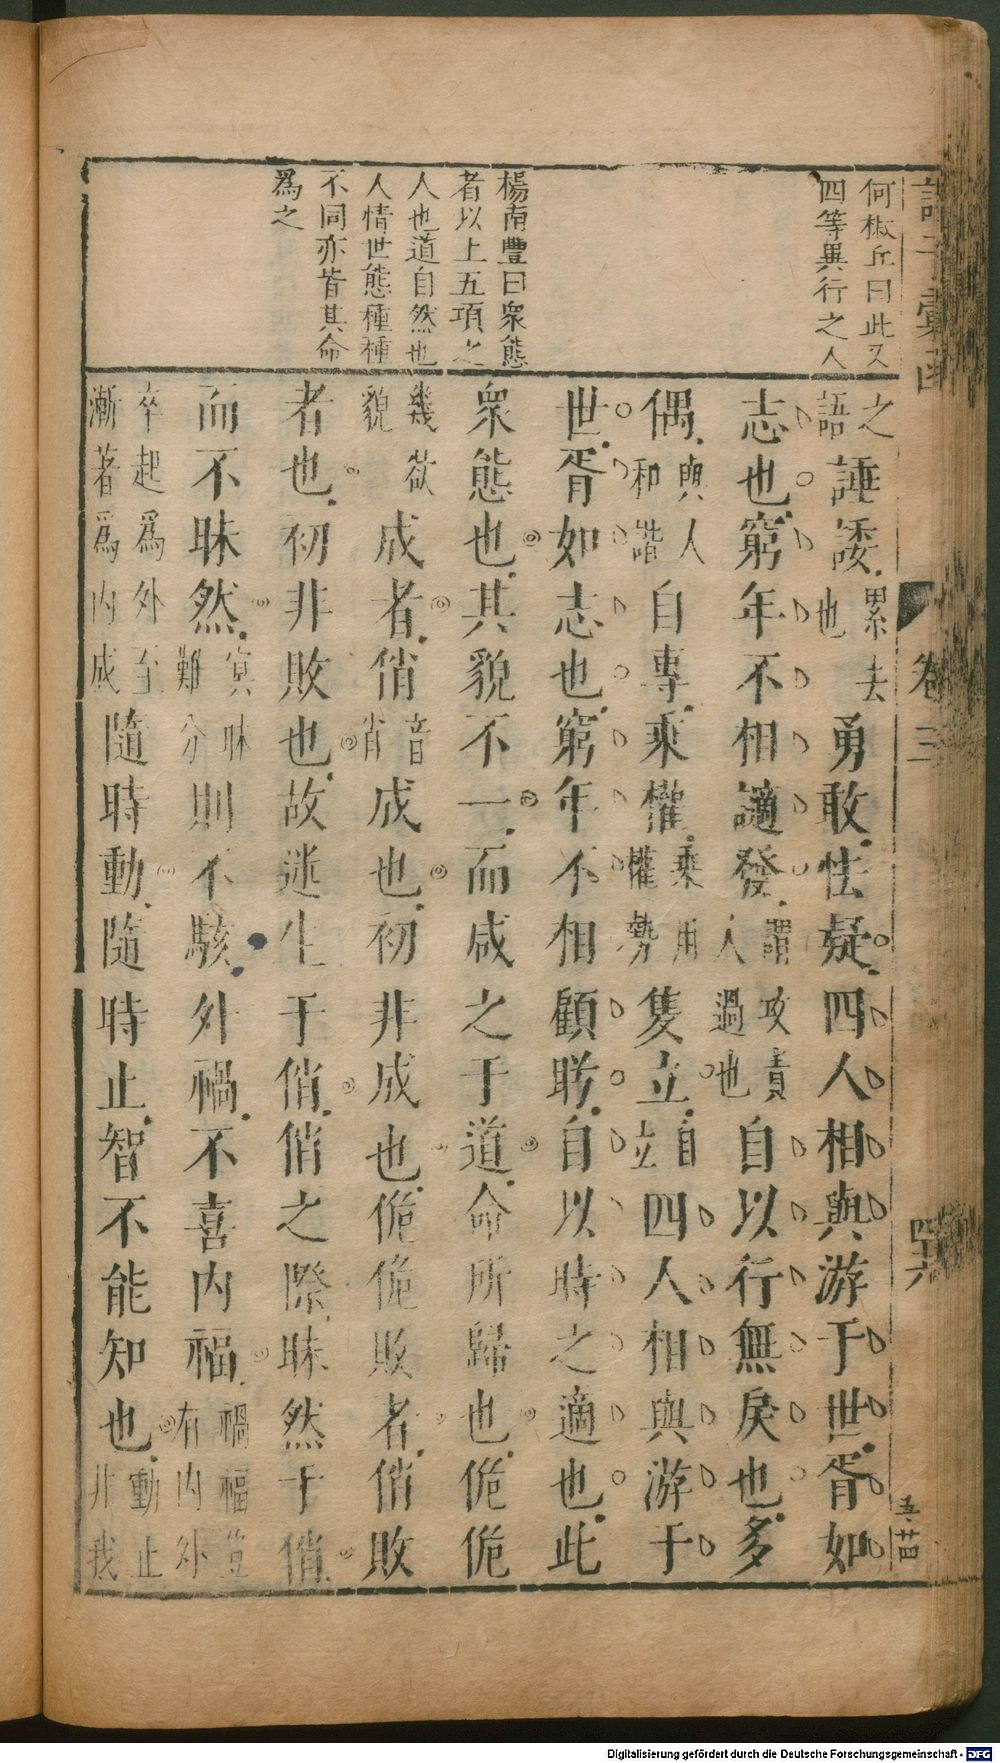 諸子彙函
卷三
四十六
何椒丘曰此又
四等異行之人
楊南豐曰衆態
者以上五項之
人也道自然也
人情世態種種
不同亦皆其命
爲之
之語諈諉累去也勇敢怯疑四人相與游于世胥如
志也窮年不相讁發謂攻責人過也自以行無戾也多
偶與人和諧自專乘權乘用權勢隻立自立四人相與游于
世胥如志也窮年不相顧眄自以時之適也此
衆態也其貌不一而咸之于道命所歸也佹佹
幾欲貌成者俏音肖成也初非成也佹佹敗者俏敗
者也初非敗也故迷生于俏俏之際昧然于俏
而不昧然冥昧難分則不駭外禍不喜內福禍福豈有內外
卒起爲外至漸著爲內成隨時動隨時止智不能知也動止非我
Digitalisierung gefördert durch die Deutsche Forschungsgemeinschaft - DFG